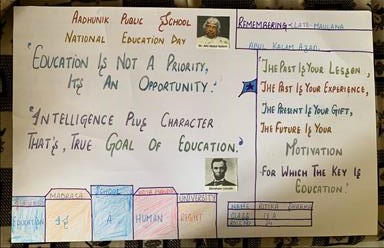 Aadhunik Public School
National Education Day
Dr. APJ Abdul Kalam
"Education Is Not A Priority,
It's An Opportunity."
"Intelligence Plus Character
That's, True Goal Of Education."
Abraham Lincoln
Remembering - Late - Maulana
Abul Kalam Azad.
"The Past Is Your Lesson,
The Past Is Your Experience,
The Present Is Your Gift,
The Future Is Your
Motivation
For Which The Key Is
Education."
Madrasa
School
University
Education
Is
A
Human
Right
Name
Ritika
Sharma
Class
Roll No